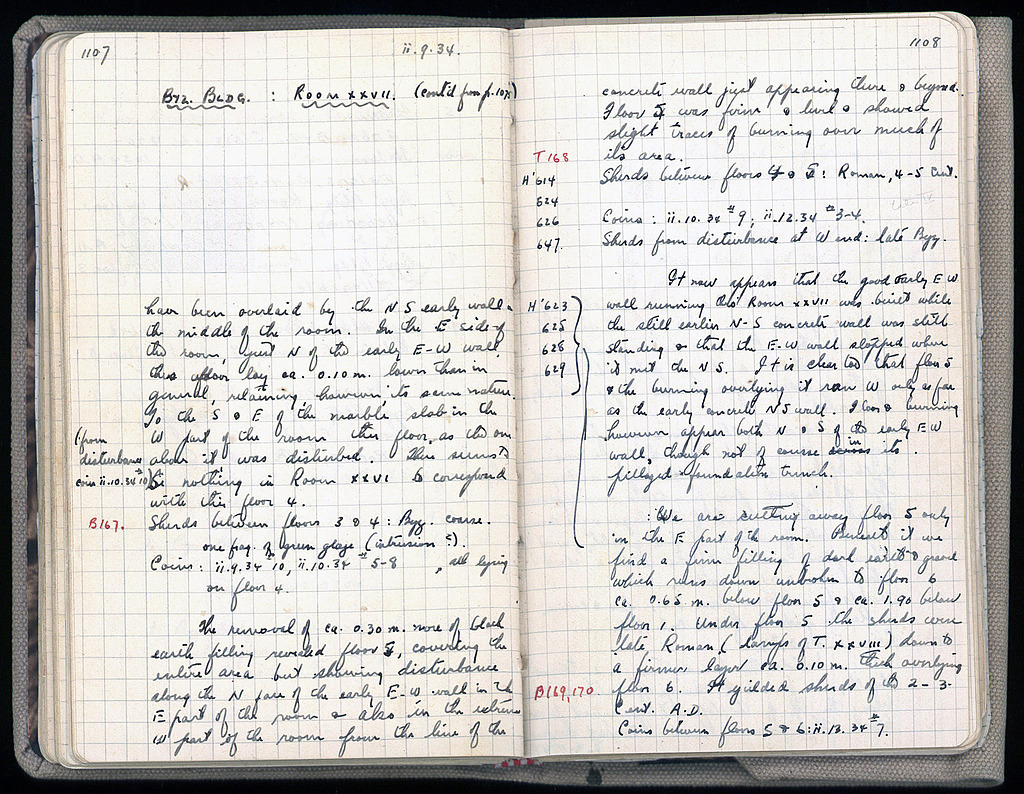 1107
ii.9.34.
Byz. Bldg. : Room XXVII. (cont'd from p.107
have been overlaid by the N S early wall
the middle of the room. In the E side of
the room, just N of the early E-W wall,
this floor lay ca. 0.10 m. lower than in
general, retaining, however, its same nature.
To the S & E of the marble slab in the
W part of the room this floor, as the one
(from
disturbance
coin ii.10.34 #10)
above it was disturbed. There seems to
be nothing in Room XXVI to correspond
with this floor 4.
B167.
Sherds between floors 3 & 4: Byz. coarse.
one frag. of green glaze (intrusion ?).
Coins: ii.9.34 #10, ii.10.34 #5-8, all lying
on floor 4.
The removal of ca. 0.30 m. more of black
earth filling revealed floor 5, covering the
entire area but showing disturbance
along the N face of the early E-W wall in the
E part of the room & also in the extreme
W part of the room from the line of the
1108
concrete wall just appearing there & beyond.
Floor 5 was firm & level & showed
slight traces of burning over much of
its area.
T 168
H'614
624
626
647.
Sherds between floors 4 & 5: Roman, 4-5 Cent.
Coins: ii.10.34 #9; ii.12.34 #3-4.
Sherds from disturbance at W end: late Byz.
It now appears that the good early E W
H'623
625
628
629
wall running thro' Room XXVII was built while
the still earlier N-S concrete wall was still
standing & that the E-W wall stopped where
it met the N S. It is clear too that floor 5
& the burning overlying it ran W only as far
as the early concrete N S wall. Floor & burning
however appear both N & S of the early E W
wall, though not of course across in its
pillaged foundation trench.
We are cutting away floor 5 only
in the E part of the room. Beneath it we
find a firm filling of dark earth & gravel
which runs down unbroken to floor 6
ca. 0.65 m. below floor 5 & ca. 1.90 below
floor 1. Under floor 5 the sherds were
late Roman (lamps of T. XXVIII) down to
a firmer layer ca. 0.10 m. thick overlying
B169,170
floor 6. It yielded sherds of the 2-3
Cent. A.D.
Coins between floors 5 & 6: ii.13.34 #7.